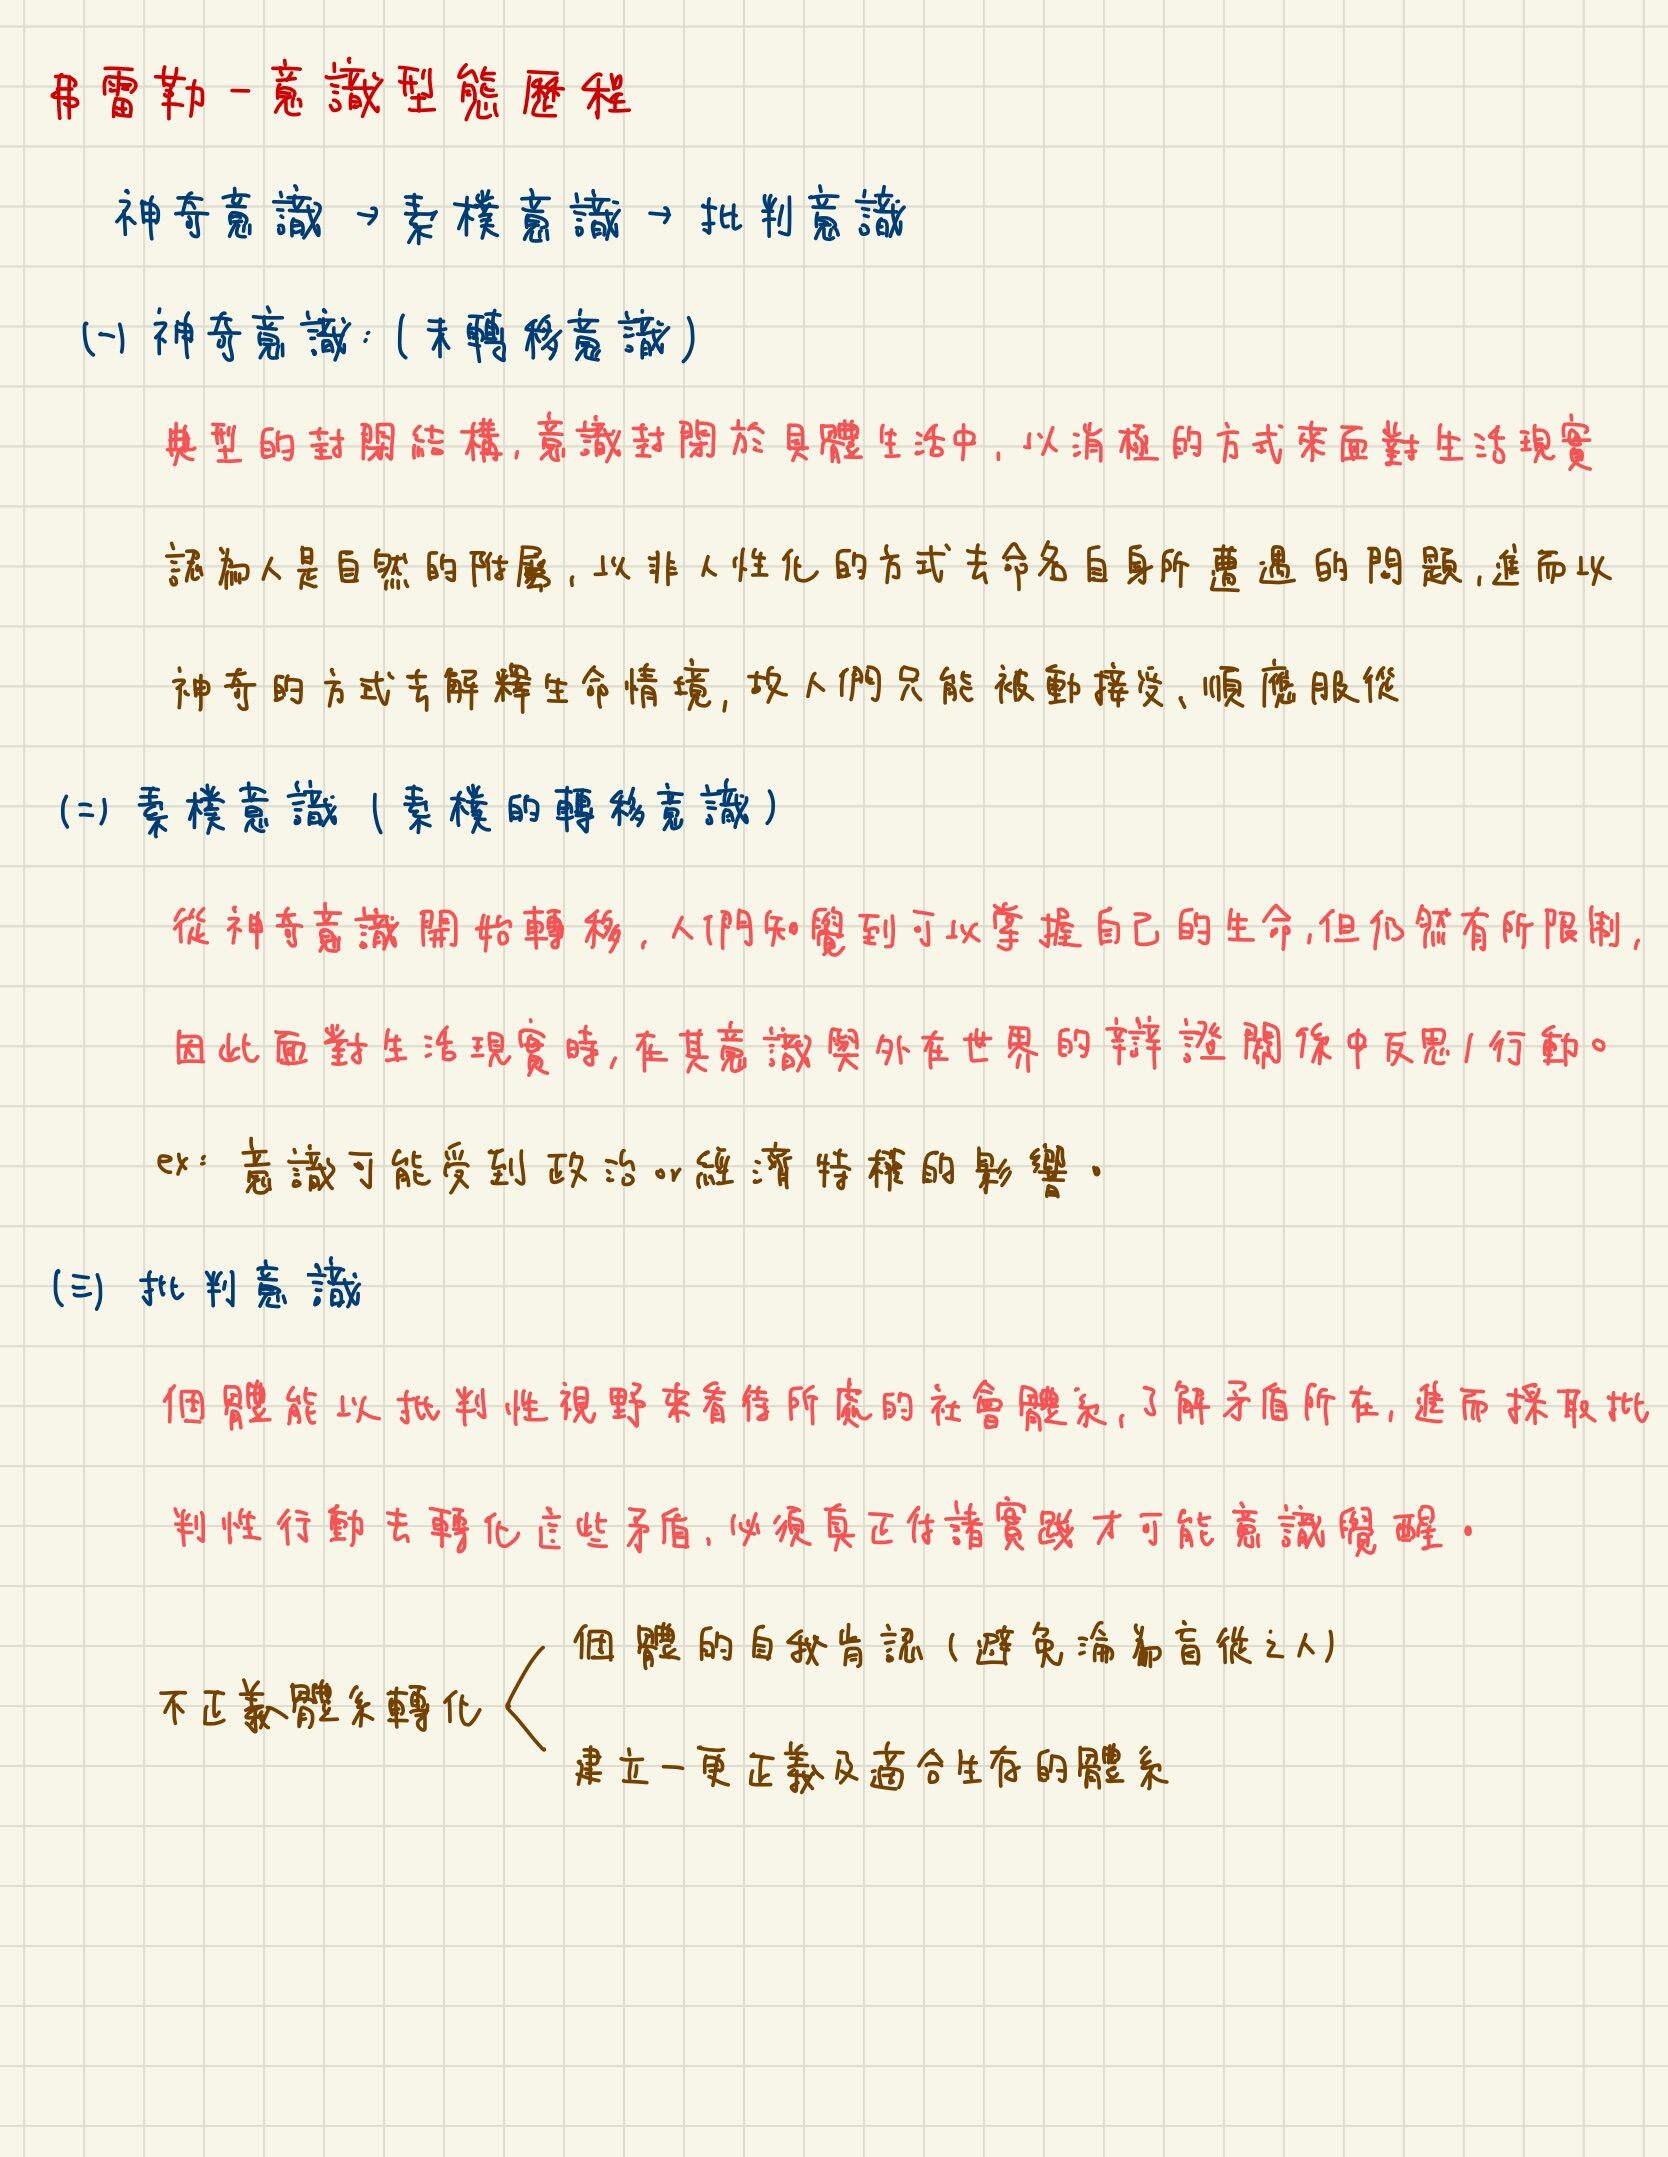 弗雷勒-意識型態歷程
神奇意識→素樸意識→批判意識
(一) 神奇意識:(未轉移意識)
典型的封閉結構,意識封閉於具體生活中,以消極的方式來面對生活現實
認為人是自然的附屬,以非人性化的方式去命名自身所遭遇的問題,進而以
神奇的方式去解釋生命情境,故人們只能被動接受、順應服從
(二) 素樸意識(素樸的轉移意識)
從神奇意識開始轉移,人們知覺到可以掌握自己的生命,但仍然有所限制,
因此面對生活現實時,在其意識與外在世界的辯證關係中反思/行動。
ex: 意識可能受到政治or經濟特權的影響.
(三) 批判意識
個體能以批判性視野來看待所處的社會體系,了解矛盾所在,進而採取批
判性行動去轉化這些矛盾,必須真正付諸實踐才可能意識覺醒.
不正義體系轉化
個體的自我肯認(避免淪為盲從之人)
建立一更正義及適合生存的體系